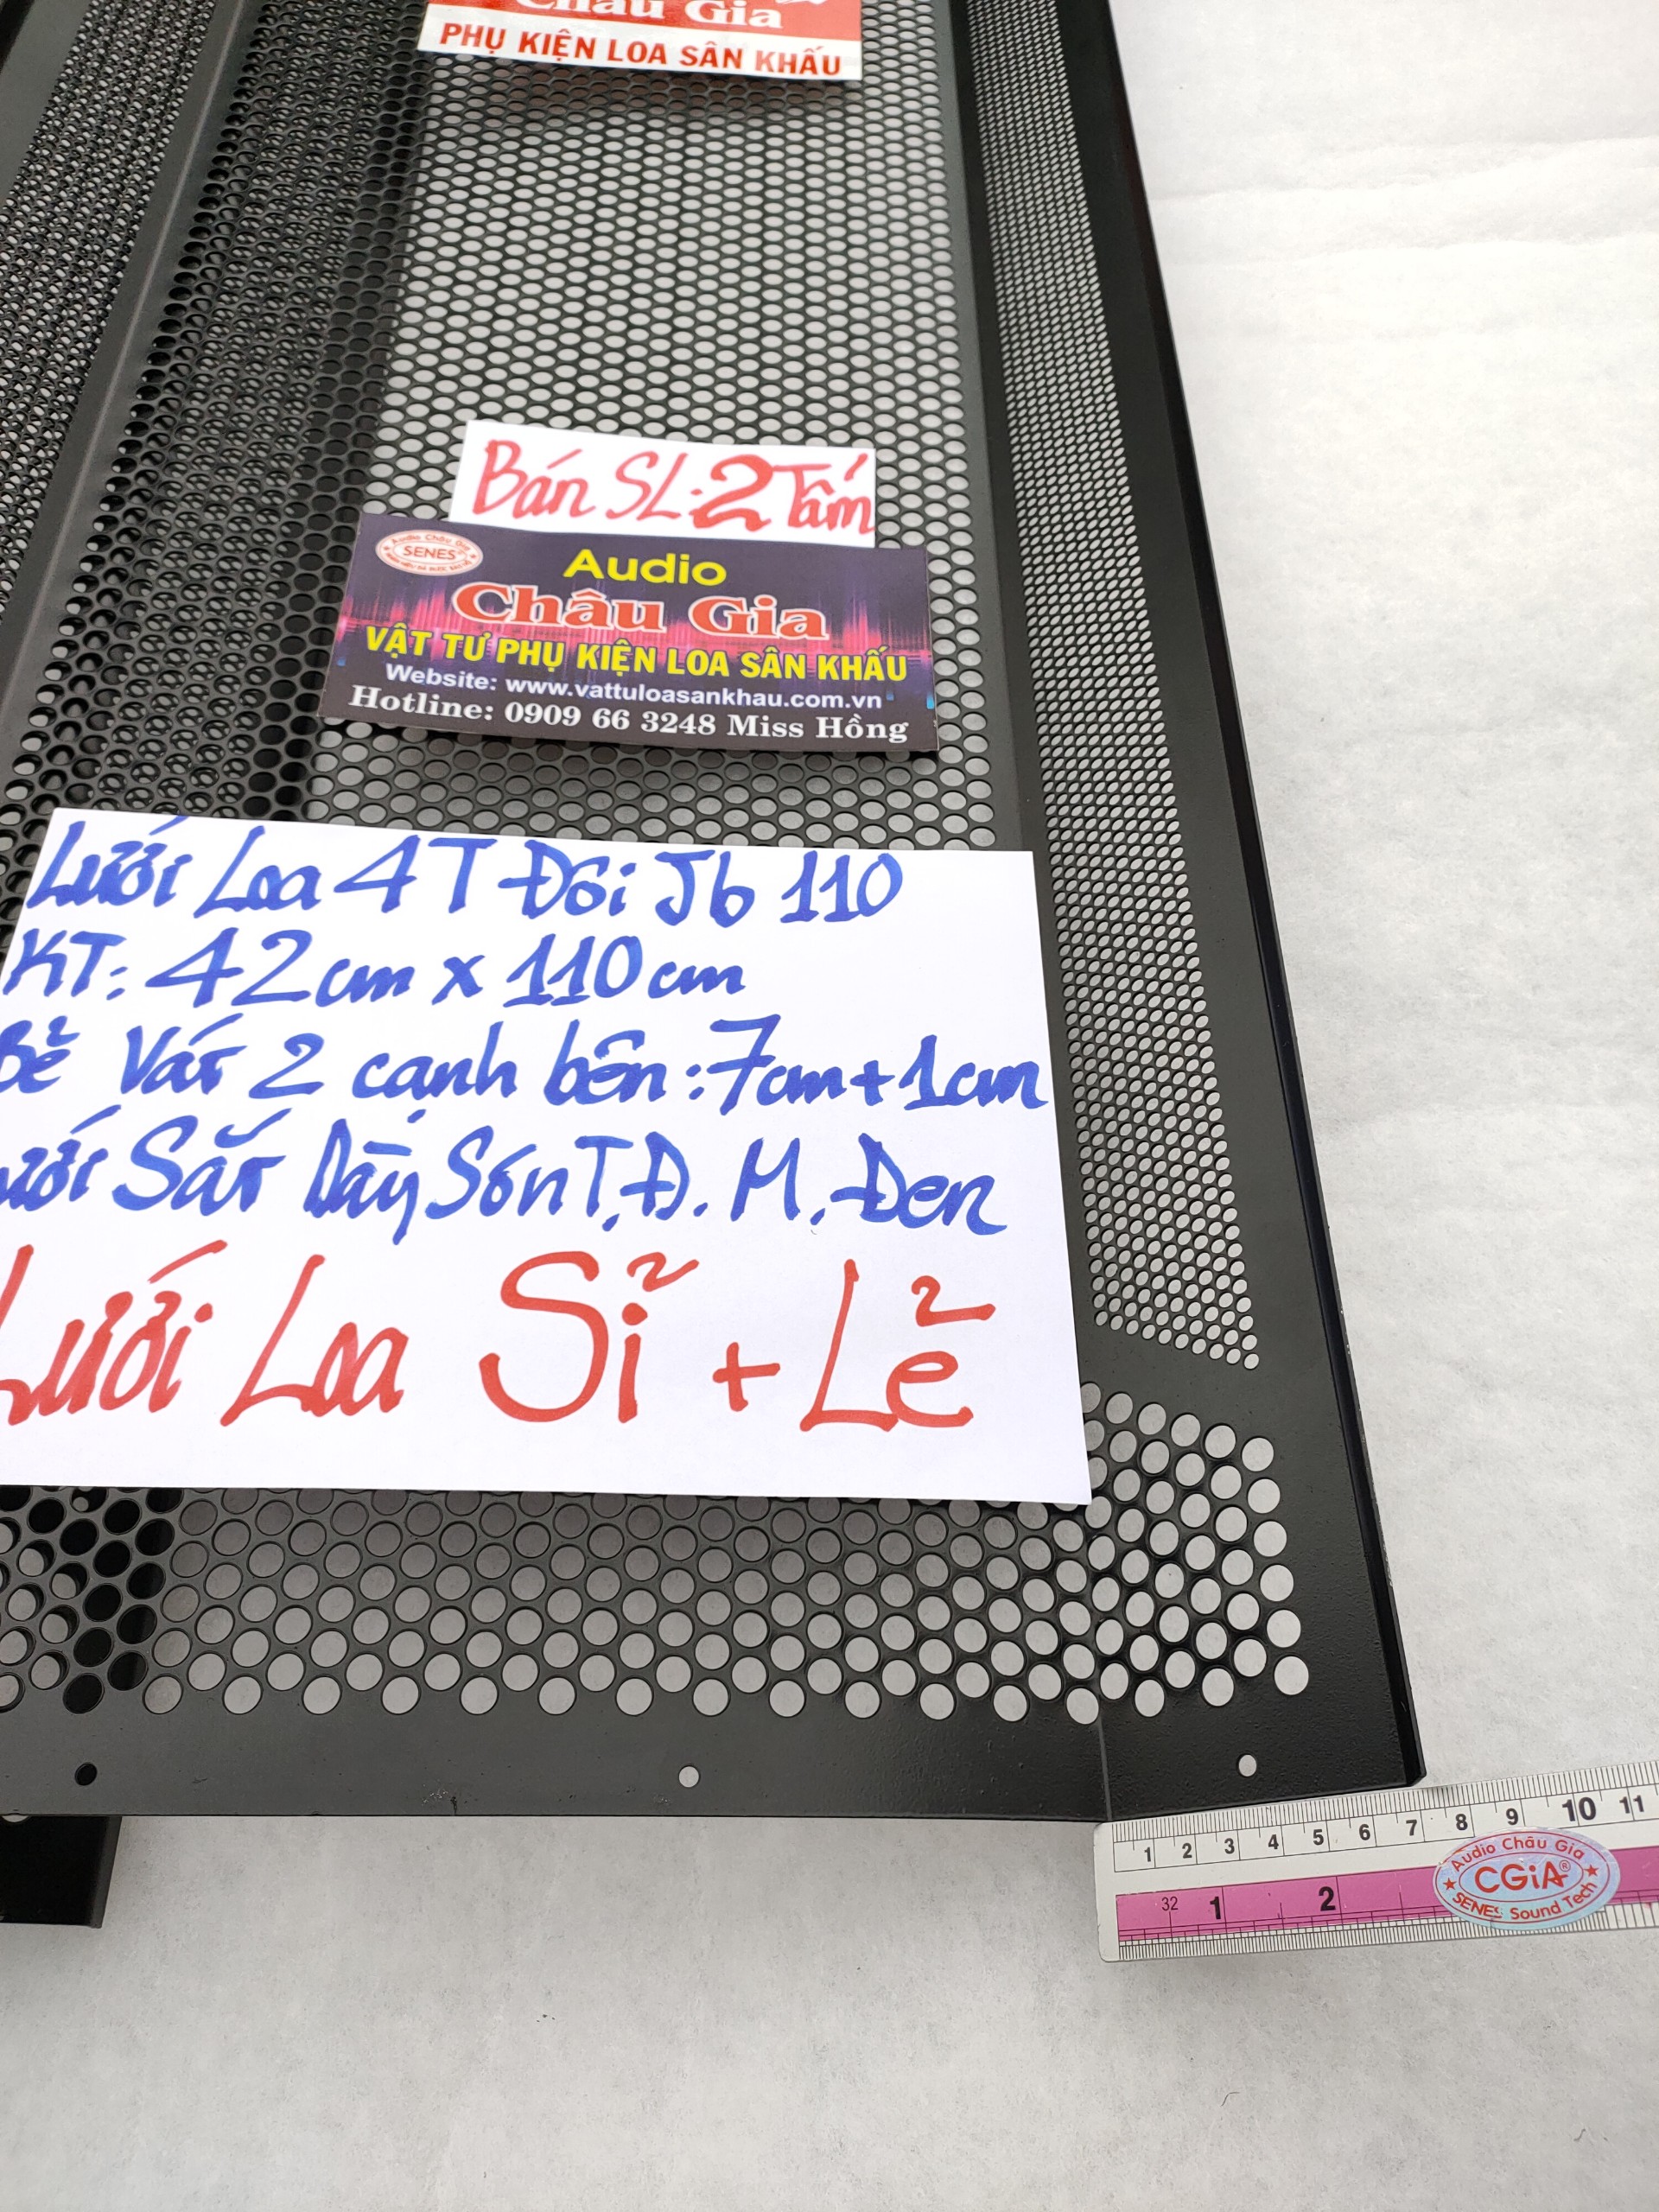 Châu Gia
PHỤ KIỆN LOA SÂN KHẤU
Bán SL: 2 Tấm
Audio Châu Gia
SENES
Audio
Châu Gia
VẬT TƯ PHỤ KIỆN LOA SÂN KHẤU
Website: www.vattuloasankhau.com.vn
Hotline: 0909 66 3248 Miss Hồng
Lưới Loa 4T Đôi Jb 110
KT: 42cm x 110cm
Bẻ Vát 2 cạnh bên: 7cm + 1cm
Sắt Dày Sơn T.Đ. M. Đen
Lưới Loa Sỉ + Lẻ
1 2 3 4 5 6 7 8 9 10 11
32 1 2
Audio Châu Gia
CGiA®
SENES Sound Tech